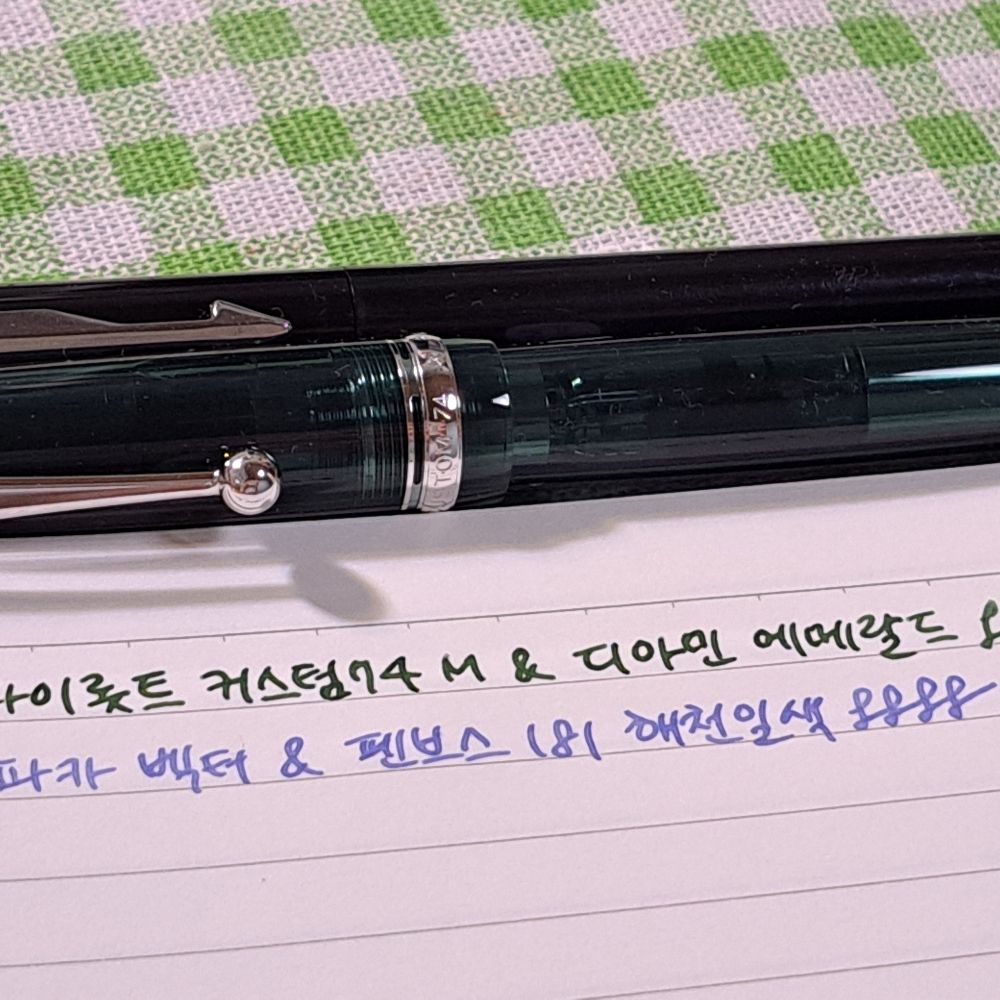 CUSTOM 74
파이롯트 커스텀74 M & 디아민 에메랄드
파카 벡터 & 펜보스 181 해천일색 8888